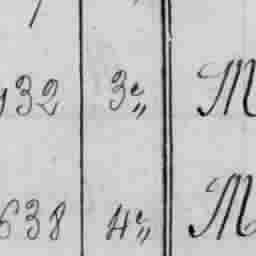 32 3e„ M
638 4e„ M